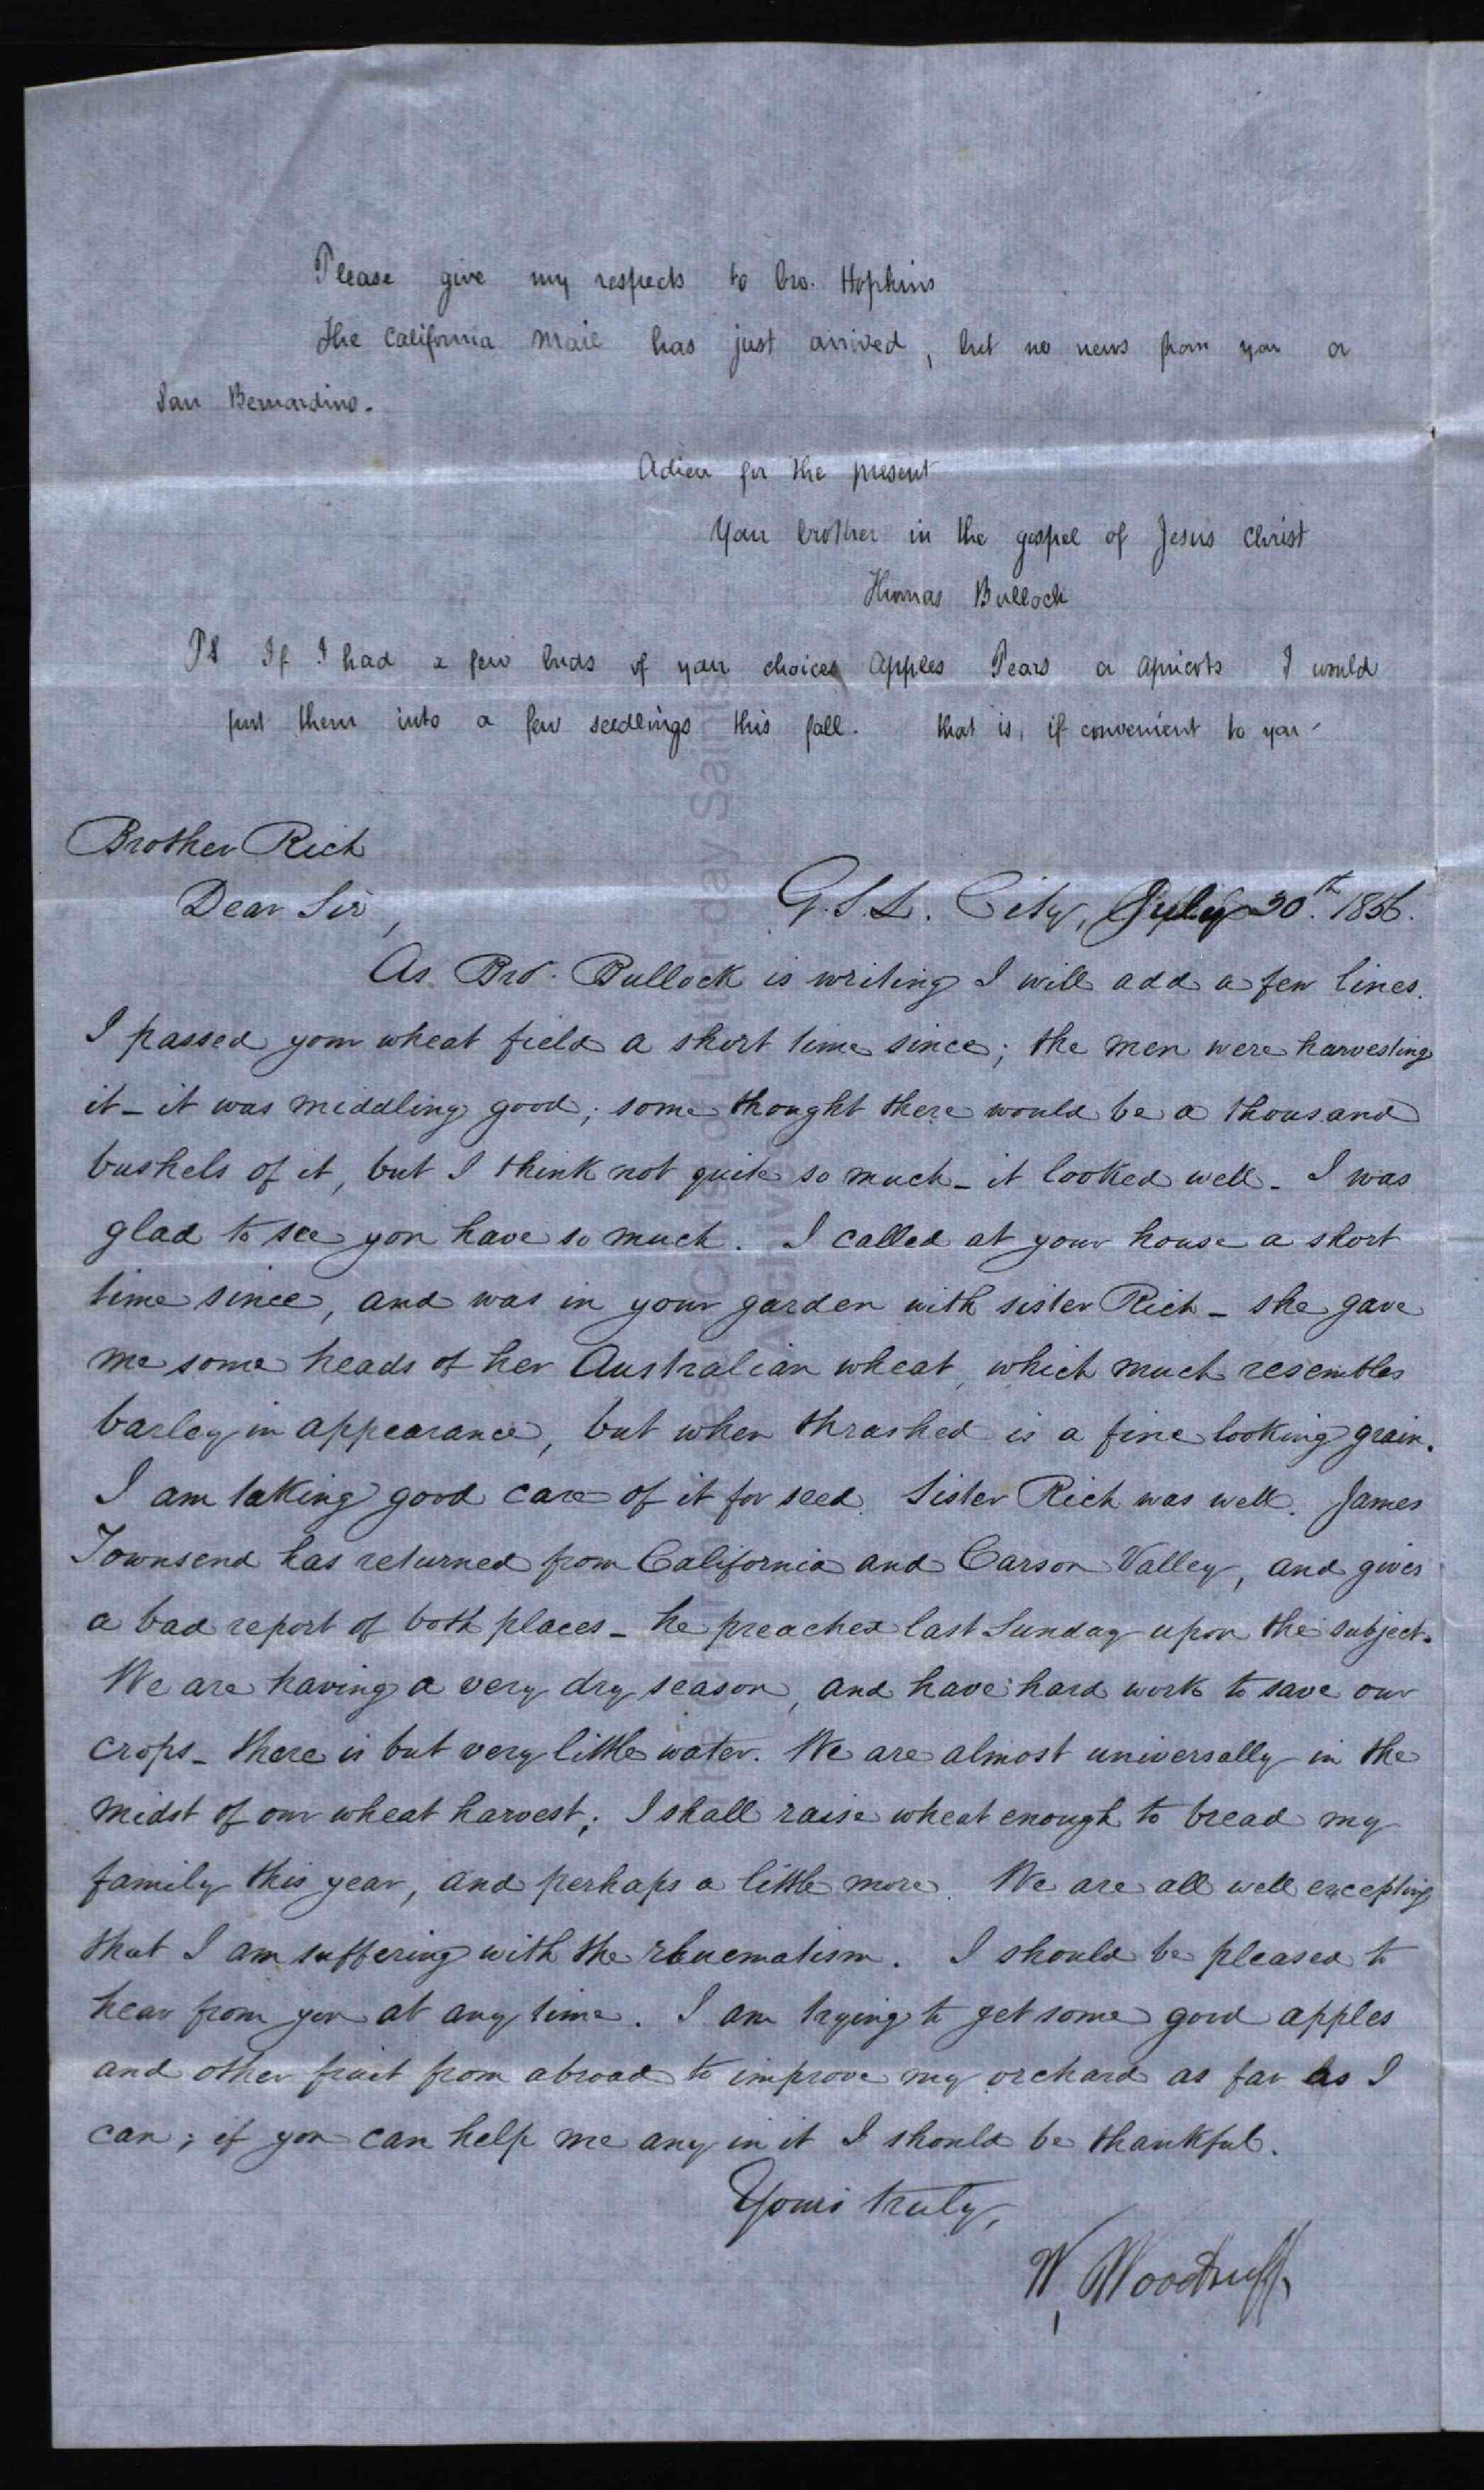 Please give my respects to bro. Hopkins
The California Mail has just arrived, but no news from you or
San Bernardino.
Adieu for the present
Your brother in the gospel of Jesus Christ
Thomas Bullock
PS If I had a few buds of your choice Apples Pears or Apricots I would
put them into a few seedlings this fall. that is, if convenient to you.
Brother Rich
Dear Sir,
G.S.L. City, July 30th. 1856.
As Bro. Bullock is writing I will add a few lines.
I passed your wheat field a short time since; the men were harvesting
it - it was middling good; some thought there would be a thousand
bushels of it, but I think not quite so much - it looked well - I was
glad to see you have so much. I called at your house a short
time since, and was in your garden with sister Rich - she gave
me some heads of her Australian wheat, which much resembles
barley in appearance, but when thrashed is a fine looking grain.
I am taking good care of it for seed. Sister Rich was well. James
Townsend has returned from California and Carson Valley, and gives
a bad report of both places - he preached last Sunday upon the subject.
We are having a very dry season, and have hard work to save our
crops - there is but very little water. We are almost universally in the
midst of our wheat harvest; I shall raise wheat enough to bread my
family this year, and perhaps a little more. We are all well excepting
that I am suffering with the rhuematism. I should be pleased to
hear from you at any time. I am trying to get some good apples
and other fruit from abroad to improve my orchard as far as I
can; if you can help me any in it I should be thankful.
Yours truly,
W. Woodruff